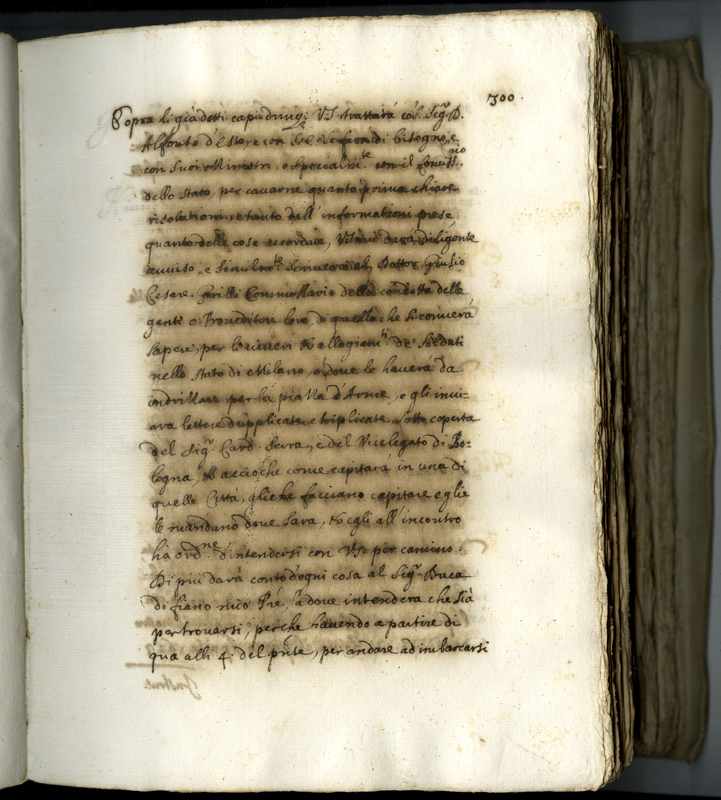 300.
Sopra li già detti capi dunq; VS trattarà col Sig.r D.
Alfonso d'Este, e con S. e se farà di bisogno, e
con Suoi Ministri, e specialm.te con il Comiss.rio
dello Stato, per cavarne quanto prima chiare
risolationi, e tanto dell'informationi prese
quanto delle cose accordate, VS mi darà diligente
avviso, e simil.te scriverà al Dottor Giulio
Cesare Commissario della condotta delle
genti e Proveditore loro, di quello che li converrà
sapere, per le ricever & allogiam.ti de' Soldati
nello Stato di Milano, o dove le haverà da
indrizzare per la piazza d'Arme, e gli invi-
arà lettere duplicate e triplicate, sotto coperta
del Sig.r Card. Serra, e del Vicelegato di Bo-
logna, & acciò che come capitarà in una di
quelle Città, gliele facciano capitare e glie
le mandano dove sarà, & egli all'incontro
ha ord.ne d'intendersi con VS per camino.
Di più darà conto d'ogni cosa al Sig.r Duca
di fiano mio Pre, là dove intenderà che sia
per trovarsi, perche havendo a partire di
qua alli 4. del pnte, per andare ad imbarcarsi